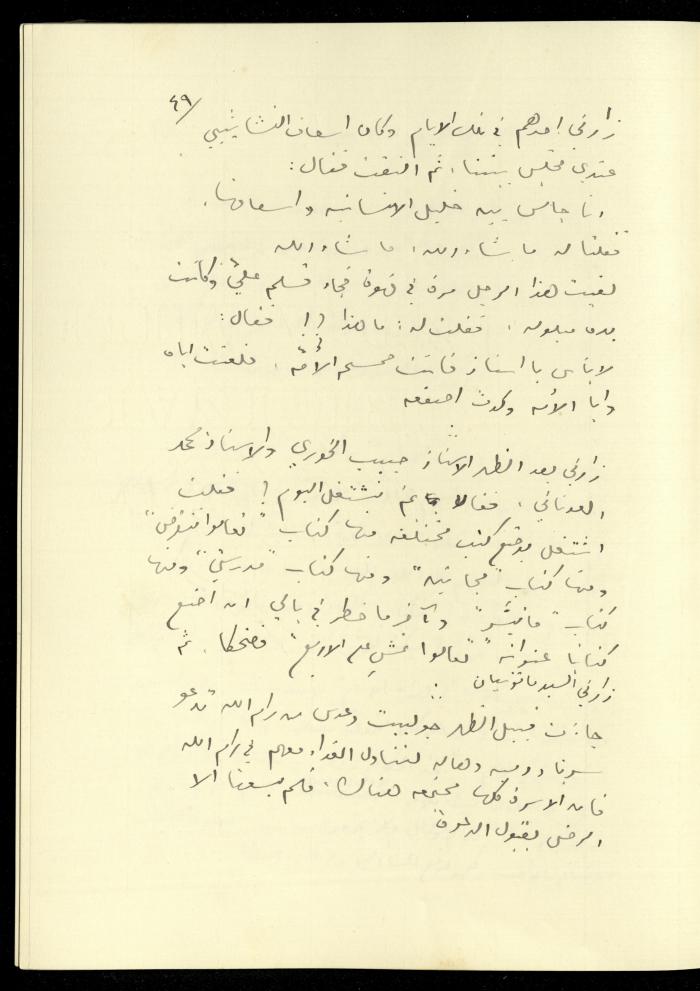 ٤٩/
زارني احدهم في بعض الايام وكان اسعاف النشاشيبي
عندي فجلس بيننا، ثم التفت فقال:
انا جالس بين خليل الانسانيه واسعافها.
فقلنا له ما شاء الله، ما شاء الله
لقيت هذا الرجل مرة في قهوة فجاء فسلم عليّ وكانت
يده مبلوله، فقلت له: ما هذا ؟! فقال:
لا بأس يا استاذ فانت ممسحة الأمّة، فلعنت اباه
وابا الأمه وكدت اصفعه
زارني بعد الظهر الاستاذ حبيب الخوري والاستاذ محمد
العدناني، فقالا بم تشتغل اليوم ؟ فقلت
اشتغل بوضع كتب مختلفه منها كتاب "تعالوا ننقرض"
ومنها كتاب "مجانين" ومنها كتاب "مدرستي" ومنها
كتاب " " وآخر ما خطر في بالي ان اضع
كتابا عنوانه "تعالوا نمشي على الاربع" فضحكا. ثم
زارني السيد
جاءت قبيل الظهر جولييت وعدى من رام الله تدعو
سريا ودميه وهاله لنتناول الغداء معهم في رام الله
فان الاسرة كلها مجتمعه هناك، فلم يسعنا الا
الرضى بقبول الدعوة